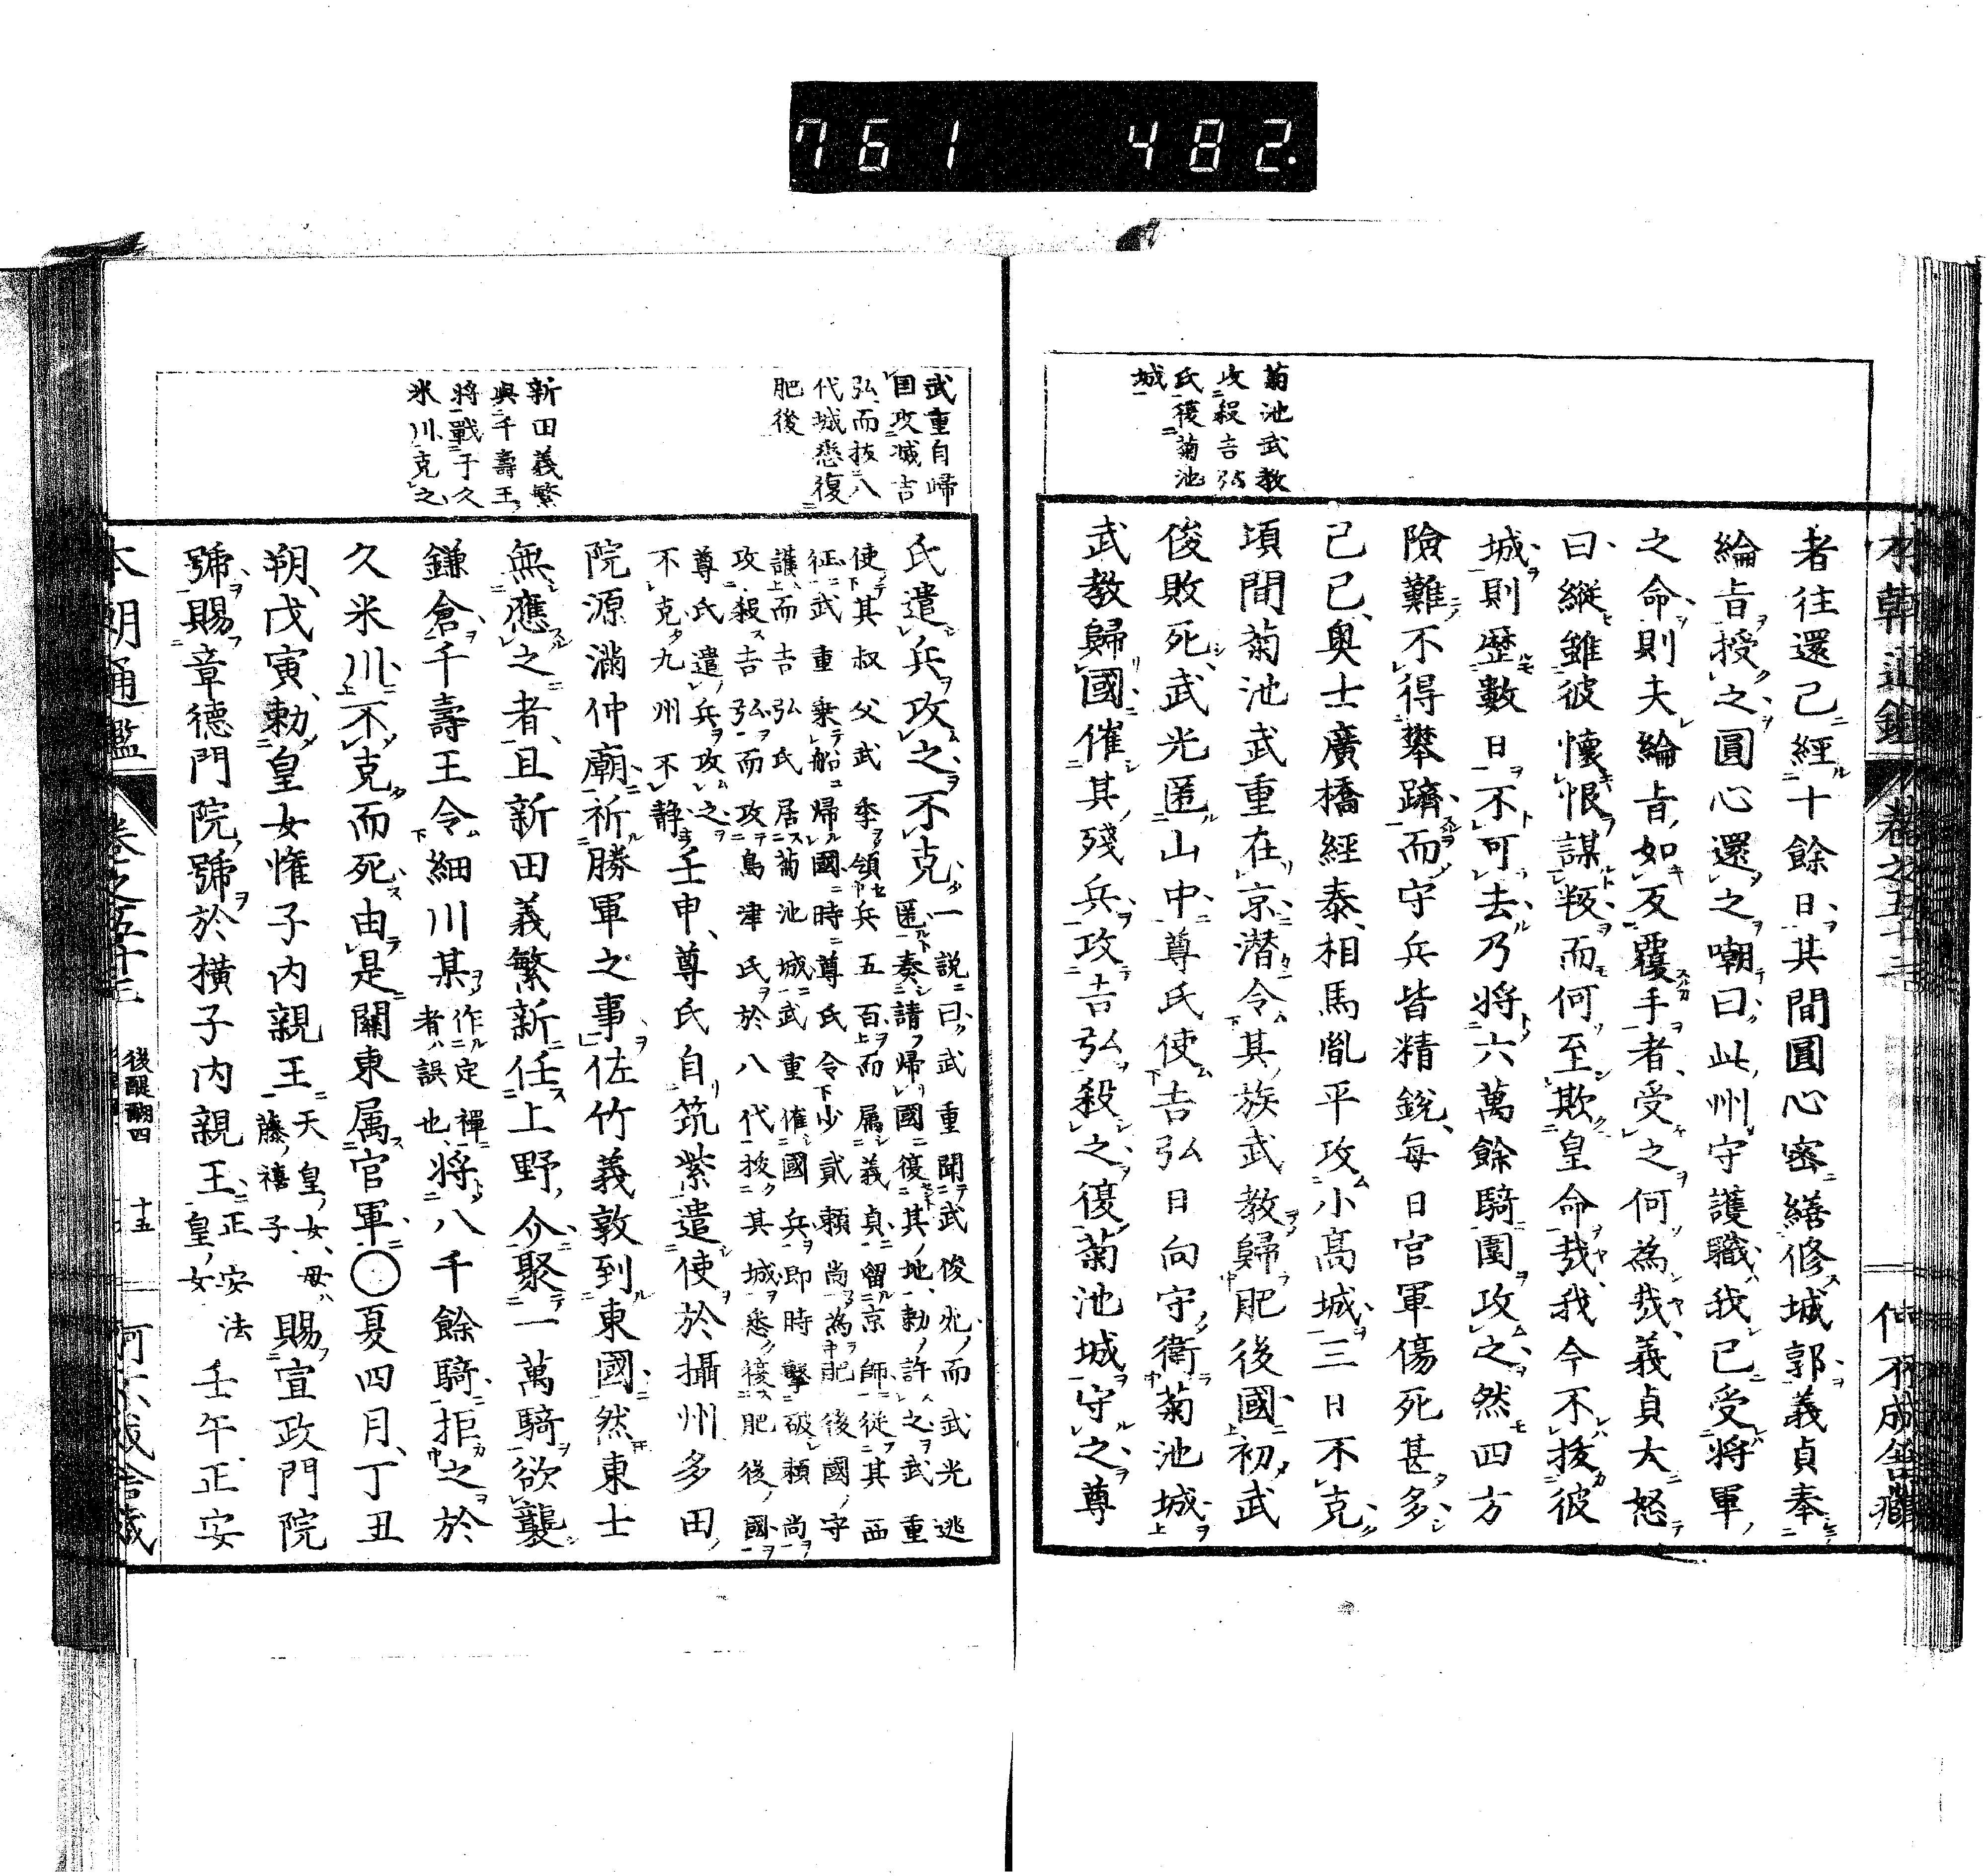 761 482.
菊池武教
攻殺吉弘
氏復菊池
城
者往還已經十餘日其間圓心密繕修城郭義貞奉
綸旨授之圓心還之嘲曰此州守護職我已受將軍
之命則夫綸旨如反覆手者受之何為哉義貞大怒
曰縱雖彼懷恨謀叛而何至欺皇命哉我今不拔彼
城則歷數日不可去乃將六萬餘騎圍攻之然四方
險難不得攀躋而守兵皆精銳每日官軍傷死甚多
己巳奥士廣橋經泰相馬胤平攻小高城三日不克
頃間菊池武重在京潜令其族武教歸肥後國初武
俊敗死武光匿山中尊氏使吉弘日向守衛菊池城
武教歸國催其殘兵攻吉弘殺之復菊池城守之尊
武重自歸
国攻滅吉
弘而抜八
代城悉復
肥後
新田義繁
與千壽王
將戰于久
米川克之
氏遣兵攻之不克一說曰武重聞武俊死而武光逃
匿奏請歸國復其地勅許之武重
使其叔父武季領兵五百而属義貞留京師從其西
征武重乗船歸國時尊氏令少貳頼尚為肥後國守
護而吉弘氏居菊池城武重催國兵即時擊破頼尚
攻殺吉弘而攻島津氏於八代拔其城悉復肥後國
尊氏遣兵攻之
不克九州不静壬申尊氏自筑紫遣使於攝州多田
院源滿仲廟祈勝軍之事佐竹義敦到東國然東士
無應之者且新田義繁新任上野介聚一萬騎欲襲
鎌倉千壽王令細川某作定禪者誤也將八千餘騎拒之於
久米川不克而死由是關東属官軍〇夏四月丁丑
朔戊寅勅皇女惟子内親王天皇女母藤禧子賜宣政門院
號賜章德門院號於橫子内親王正安法皇皇女壬午正安
本朝通鑑
卷之五十三
後醍醐四
十五